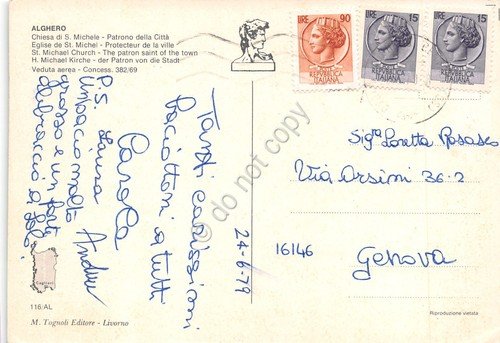 ALGHERO
Chiesa di S. Michele - Patrono della Città
Eglise de St. Michel - Protecteur de la ville
St. Michael Church - The patron saint of the town
H. Michael Kirche - der Patron von die Stadt
Veduta aerea - Concess. 382/69
LIRE 90
REPVBBLICA
ITALIANA
LIRE 15
REPVBBLICA
ITALIANA
LIRE 15
REPVBBLICA
ITALIANA
24-6-79
Tanti carissimi
baciottoni a tutti
Carola
Andrea
P.S. Laura
un bacio molto
grosso e un forte
abbraccio
Sig.na Loretta Rosasco
Via Orsini 36-2
16146
Genova
Cagliari
116/AL
M. Tognoli Editore - Livorno
Riproduzione vietata
do not copy